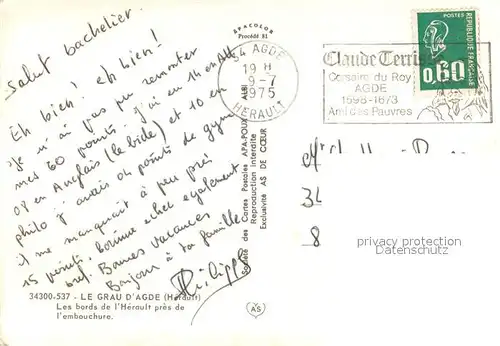 Salut bachelier.
Eh bien! eh bien!
Je n'ai pas pu remonter
mes 60 points. j'ai eu 14 en All
08 en Anglais (le bide) et 10 en
philo j'avais 04 points de gym
il me manquait à peu près
15 points, bonne echec également
bref. Bonnes vacances
Bonjour à ta famille
Philippe
34300-537 - LE GRAU D'AGDE (Hérault)
Les bords de l'Hérault près de
l'embouchure.
SPACOLOR
Procédé 81
Société des Cartes Postales APA-POUX - ALBI
Reproduction interdite
Exclusivité AS DE CŒUR
AS
34 AGDE
19 H
9-7
1975
HERAULT
Claude Terris
Corsaire du Roy
AGDE
1598-1673
Ami des Pauvres
POSTES
0,60
REPUBLIQUE FRANÇAISE
privacy protection